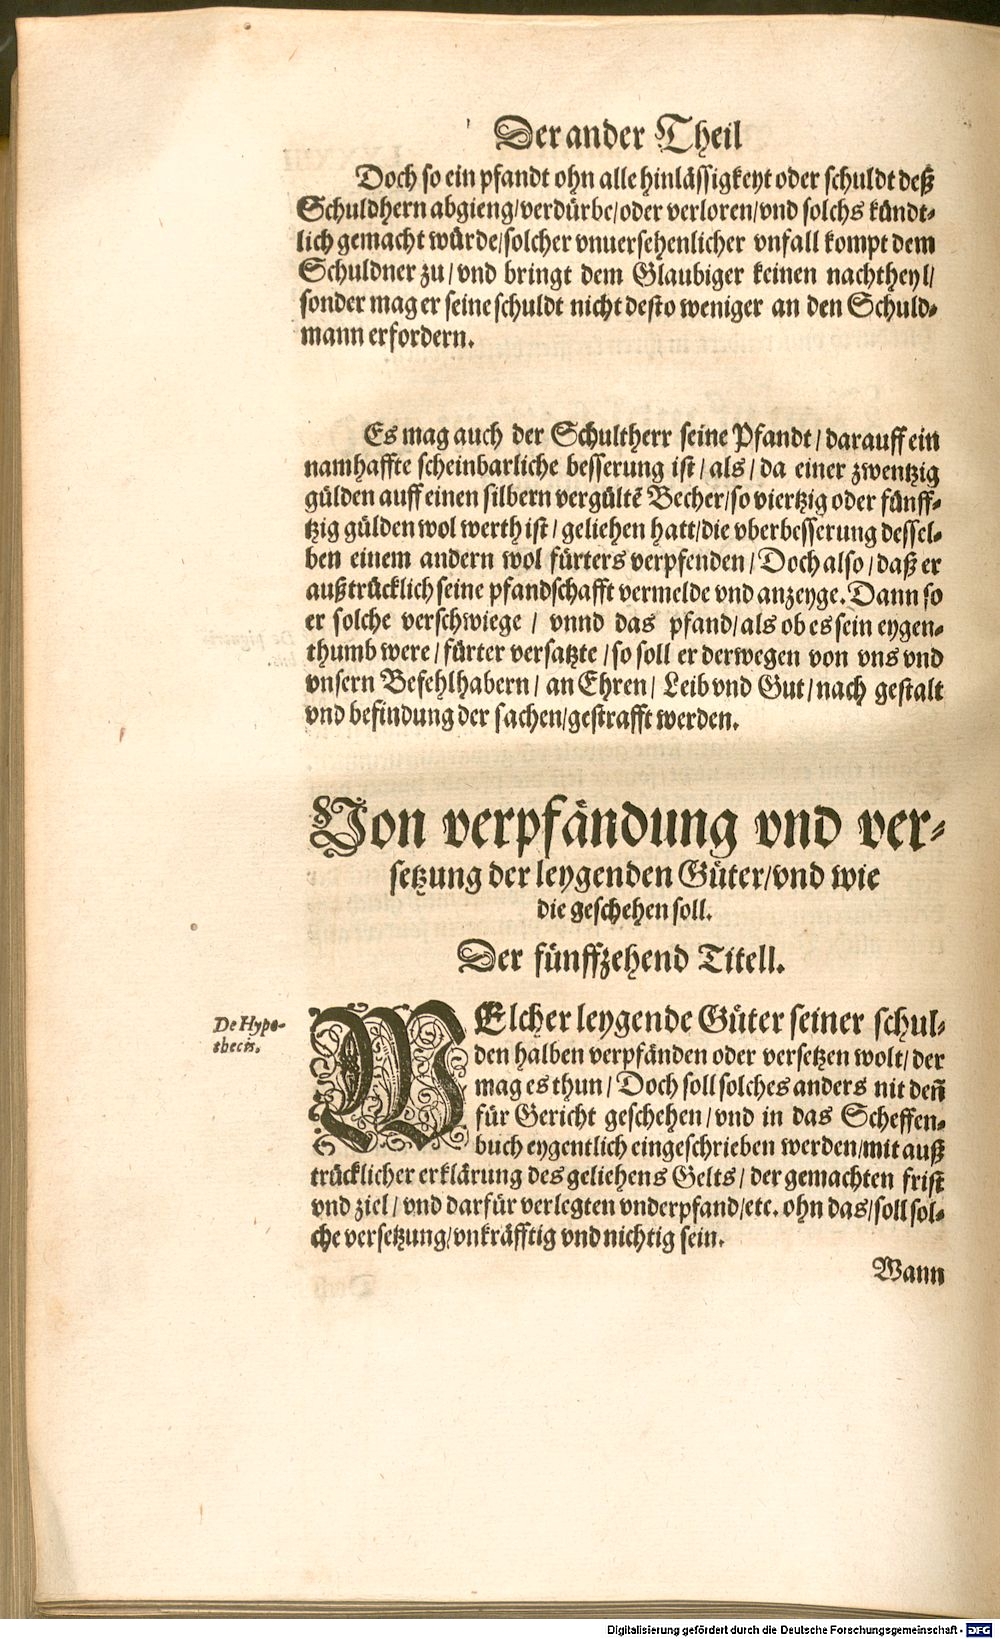 Der ander Theil
Doch so ein pfandt ohn alle hinlässigkeyt oder schuldt deß
Schuldhern abgieng/verdürbe/oder verloren/vnd solchs kündt-
lich gemacht würde/solcher vnuersehenlicher vnfall kompt dem
Schuldner zu/vnd bringt dem Glaubiger keinen nachtheyl/
sonder mag er seine schuldt nicht desto weniger an den Schuld-
mann erfordern.
Es mag auch der Schultherr seine Pfandt/darauff ein
namhaffte scheinbarliche besserung ist/als/da einer zwentzig
gülden auff einen silbern vergültē Becher/so viertzig oder fünff-
tzig gülden wol werth ist/geliehen hatt/die vberbesserung dessel-
ben einem andern wol fürters verpfenden/Doch also/daß er
außtrücklich seine pfandschafft vermelde vnd anzeyge. Dann so
er solche verschwiege / vnnd das pfand/als ob es sein eygen-
thumb were/fürter versatzte/so soll er derwegen von vns vnd
vnsern Befehlhabern/an Ehren/Leib vnd Gut/nach gestalt
vnd befindung der sachen/gestrafft werden.
Von verpfändung vnd ver-
setzung der leygenden Güter/vnd wie
die geschehen soll.
Der fünffzehend Titell.
De Hypo-
thecis.
WElcher leygende Güter seiner schul-
den halben verpfänden oder versetzen wolt/der
mag es thun/Doch soll solches anders nit deñ
für Gericht geschehen/vnd in das Scheffen-
buch eygentlich eingeschrieben werden/mit auß
trücklicher erklärung des geliehens Gelts/der gemachten frist
vnd ziel/vnd darfür verlegten vnderpfand/etc. ohn das/soll sol-
che versetzung/vnkräfftig vnd nichtig sein.
Wann
Digitalisierung gefördert durch die Deutsche Forschungsgemeinschaft - DFG